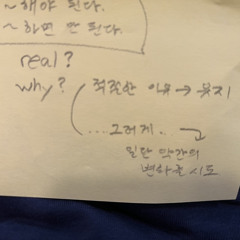 ~해야 된다.
~하면 안 된다.
real?
why? 적절한 이유 → 유지
...그러게.. →
일단 약간의
변화를 시도